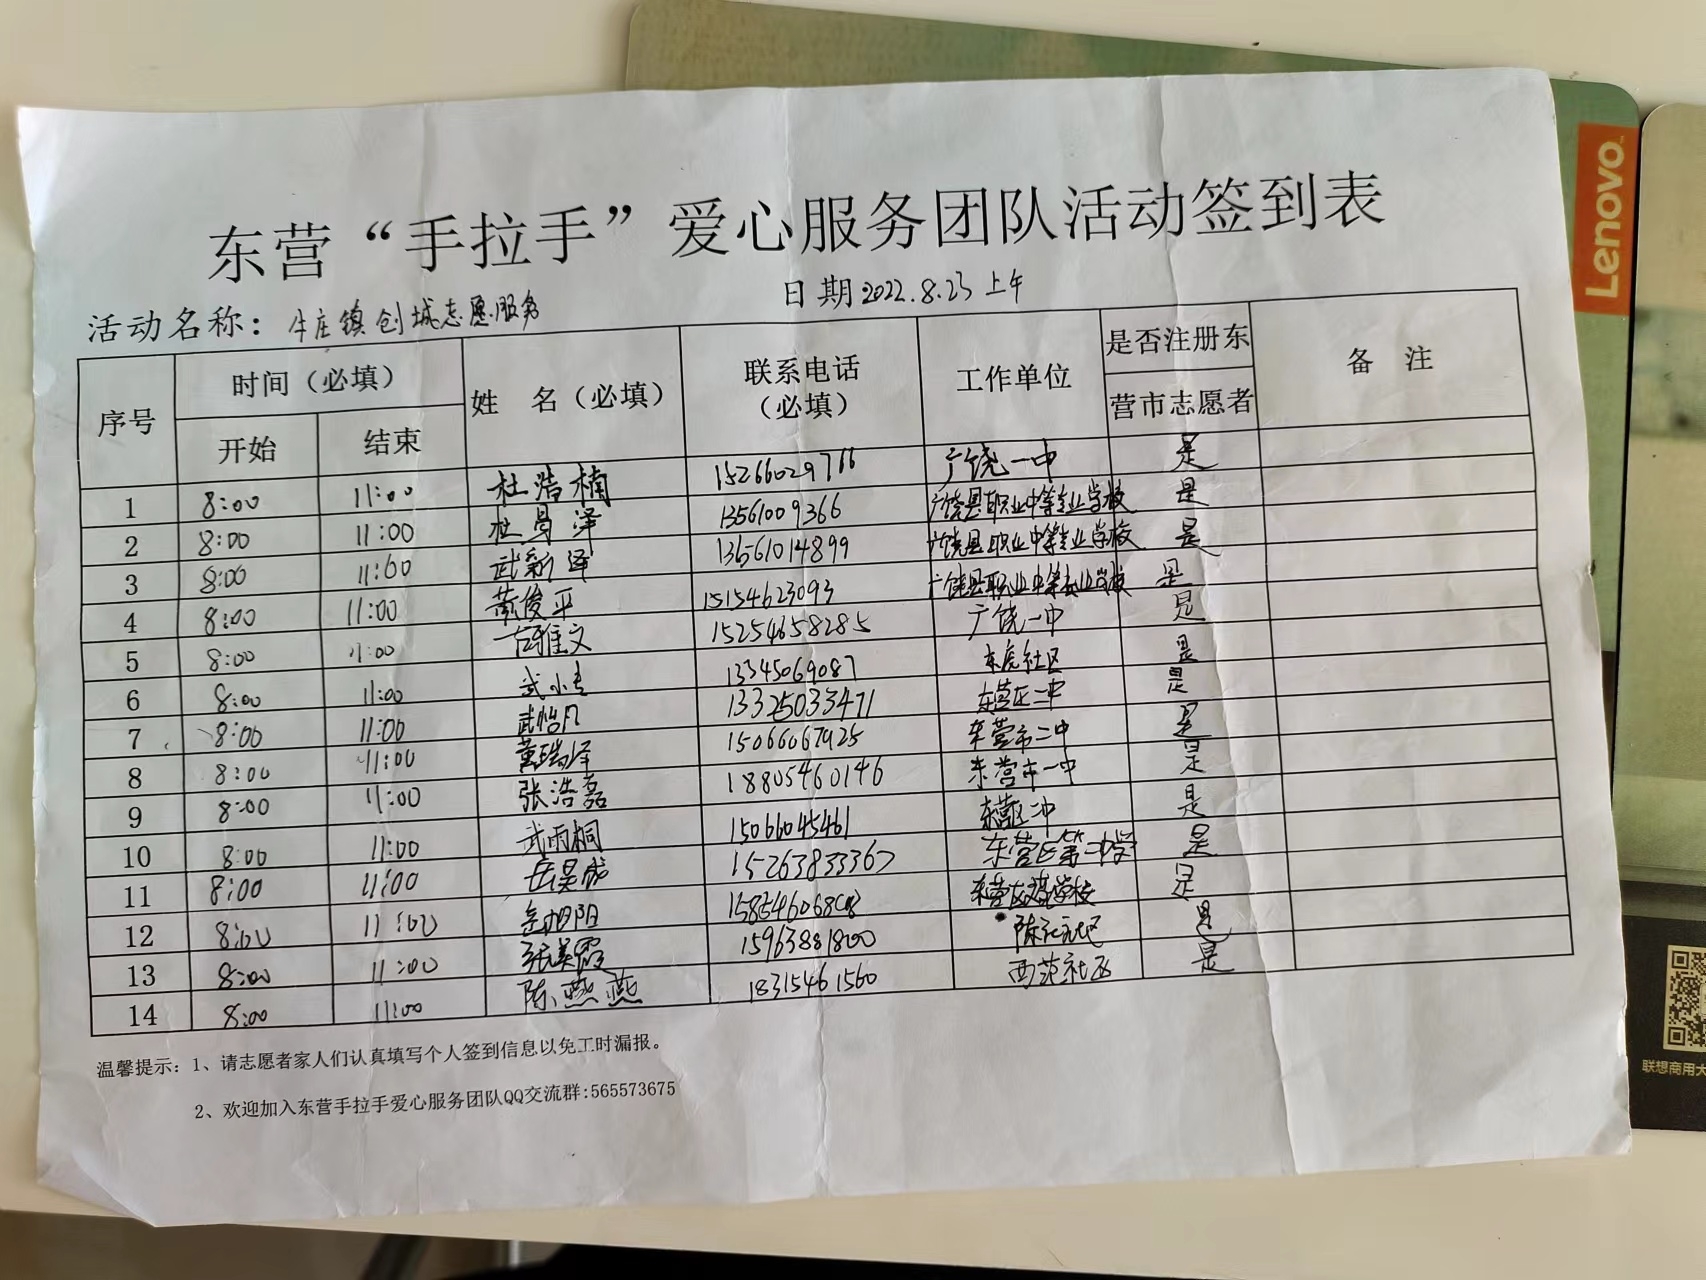 东营“手拉手”爱心服务团队活动签到表
活动名称：牛庄镇创城志愿服务 日期2022.8.23上午
序号 时间（必填） 开始 结束 姓 名（必填） 联系电话（必填） 工作单位 是否注册东营市志愿者 备 注
1 8:00 11:00 杜浩楠 15266029766 广饶一中 是
2 8:00 11:00 杜昌泽 13561009366 广饶县职业中等专业学校 是
3 8:00 11:00 武新泽 13561014899 广饶县职业中等专业学校 是
4 8:00 11:00 俊平 15154623093 广饶县职业中等专业学校 是
5 8:00 11:00 15254658285 广饶一中 是
6 8:00 11:00 武小 13345069087 社区 是
7 8:00 11:00 武怡凡 13325033471 东营区二中 是
8 8:00 11:00 董瑞泽 15066067925 东营市二中 是
9 8:00 11:00 张浩磊 18805460146 东营市一中 是
10 8:00 11:00 武雨桐 15066045461 东营区二中 是
11 8:00 11:00 岳昊成 15263833367 东营区第二中学 是
12 8:00 11:00 岳旭阳 东营区 学校 是
13 8:00 11:00 张美霞 15963881800 陈 社区 是
14 8:00 11:00 陈燕燕 18315461560 西范社区 是
温馨提示：1、请志愿者家人们认真填写个人签到信息以免工时漏报。
2、欢迎加入东营手拉手爱心服务团队QQ交流群:565573675
Lenovo
联想商用大